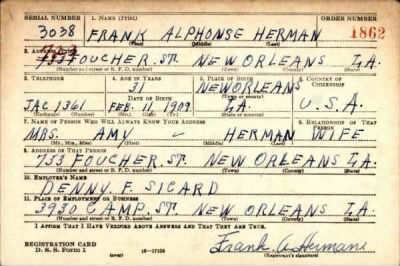 SERIAL NUMBER 1. NAME (Print) ORDER NUMBER
3038 FRANK ALPHONSE HERMAN 1862
(First) (Middle) (Last)
2. ADDRESS (Print)
733 FOUCHER. ST. NEW ORLEANS LA.
(Number and street or R. F. D. number) (Town) (County) (State)
3. TELEPHONE 4. AGE IN YEARS 5. PLACE OF BIRTH 6. COUNTRY OF CITIZENSHIP
31 NEW ORLEANS
DATE OF BIRTH (Town or county)
JAC. 1361 FEB. 11, 1909 LA. U.S.A.
(Mo.) (Day) (Yr.) (State or country)
7. NAME OF PERSON WHO WILL ALWAYS KNOW YOUR ADDRESS 8. RELATIONSHIP OF THAT PERSON
MRS. AMY - HERMAN WIFE
(Mr., Mrs., Miss) (First) (Middle) (Last)
9. ADDRESS OF THAT PERSON
733 FOUCHER. ST. NEW ORLEANS LA.
(Number and street or R. F. D. number) (Town) (County) (State)
10. EMPLOYER'S NAME
DENNY. F. SICARD
11. PLACE OF EMPLOYMENT OR BUSINESS
3930 CAMP. ST. NEW ORLEANS LA.
(Number and street or R. F. D. number) (Town) (County) (State)
I AFFIRM THAT I HAVE VERIFIED ABOVE ANSWERS AND THAT THEY ARE TRUE.
REGISTRATION CARD
D. S. S. Form 1 (over) 16-17105 Frank A Hermann
(Registrant's signature)